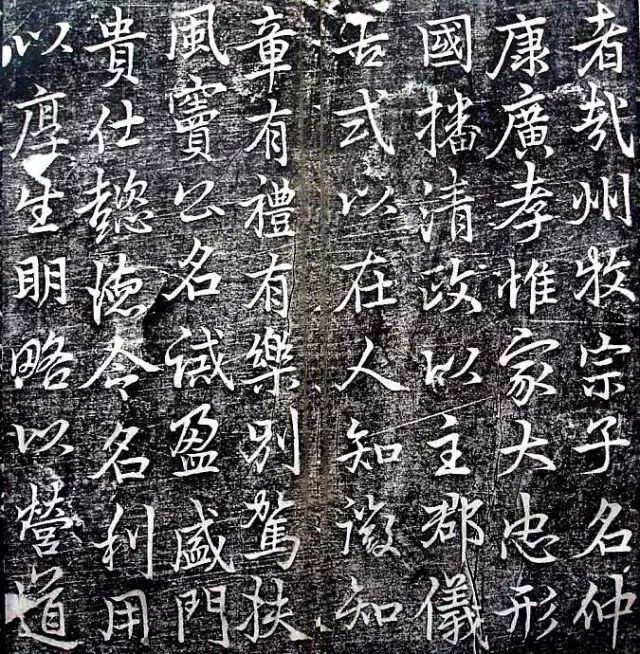 者哉州牧宗子名仲
康廣孝惟家大忠形
國播清政以主郡儀
古式以在人知微知
章有禮有樂別駕扶
風竇公名誡盈盛門
貴仕懿德令名利用
以厚生明略以營道